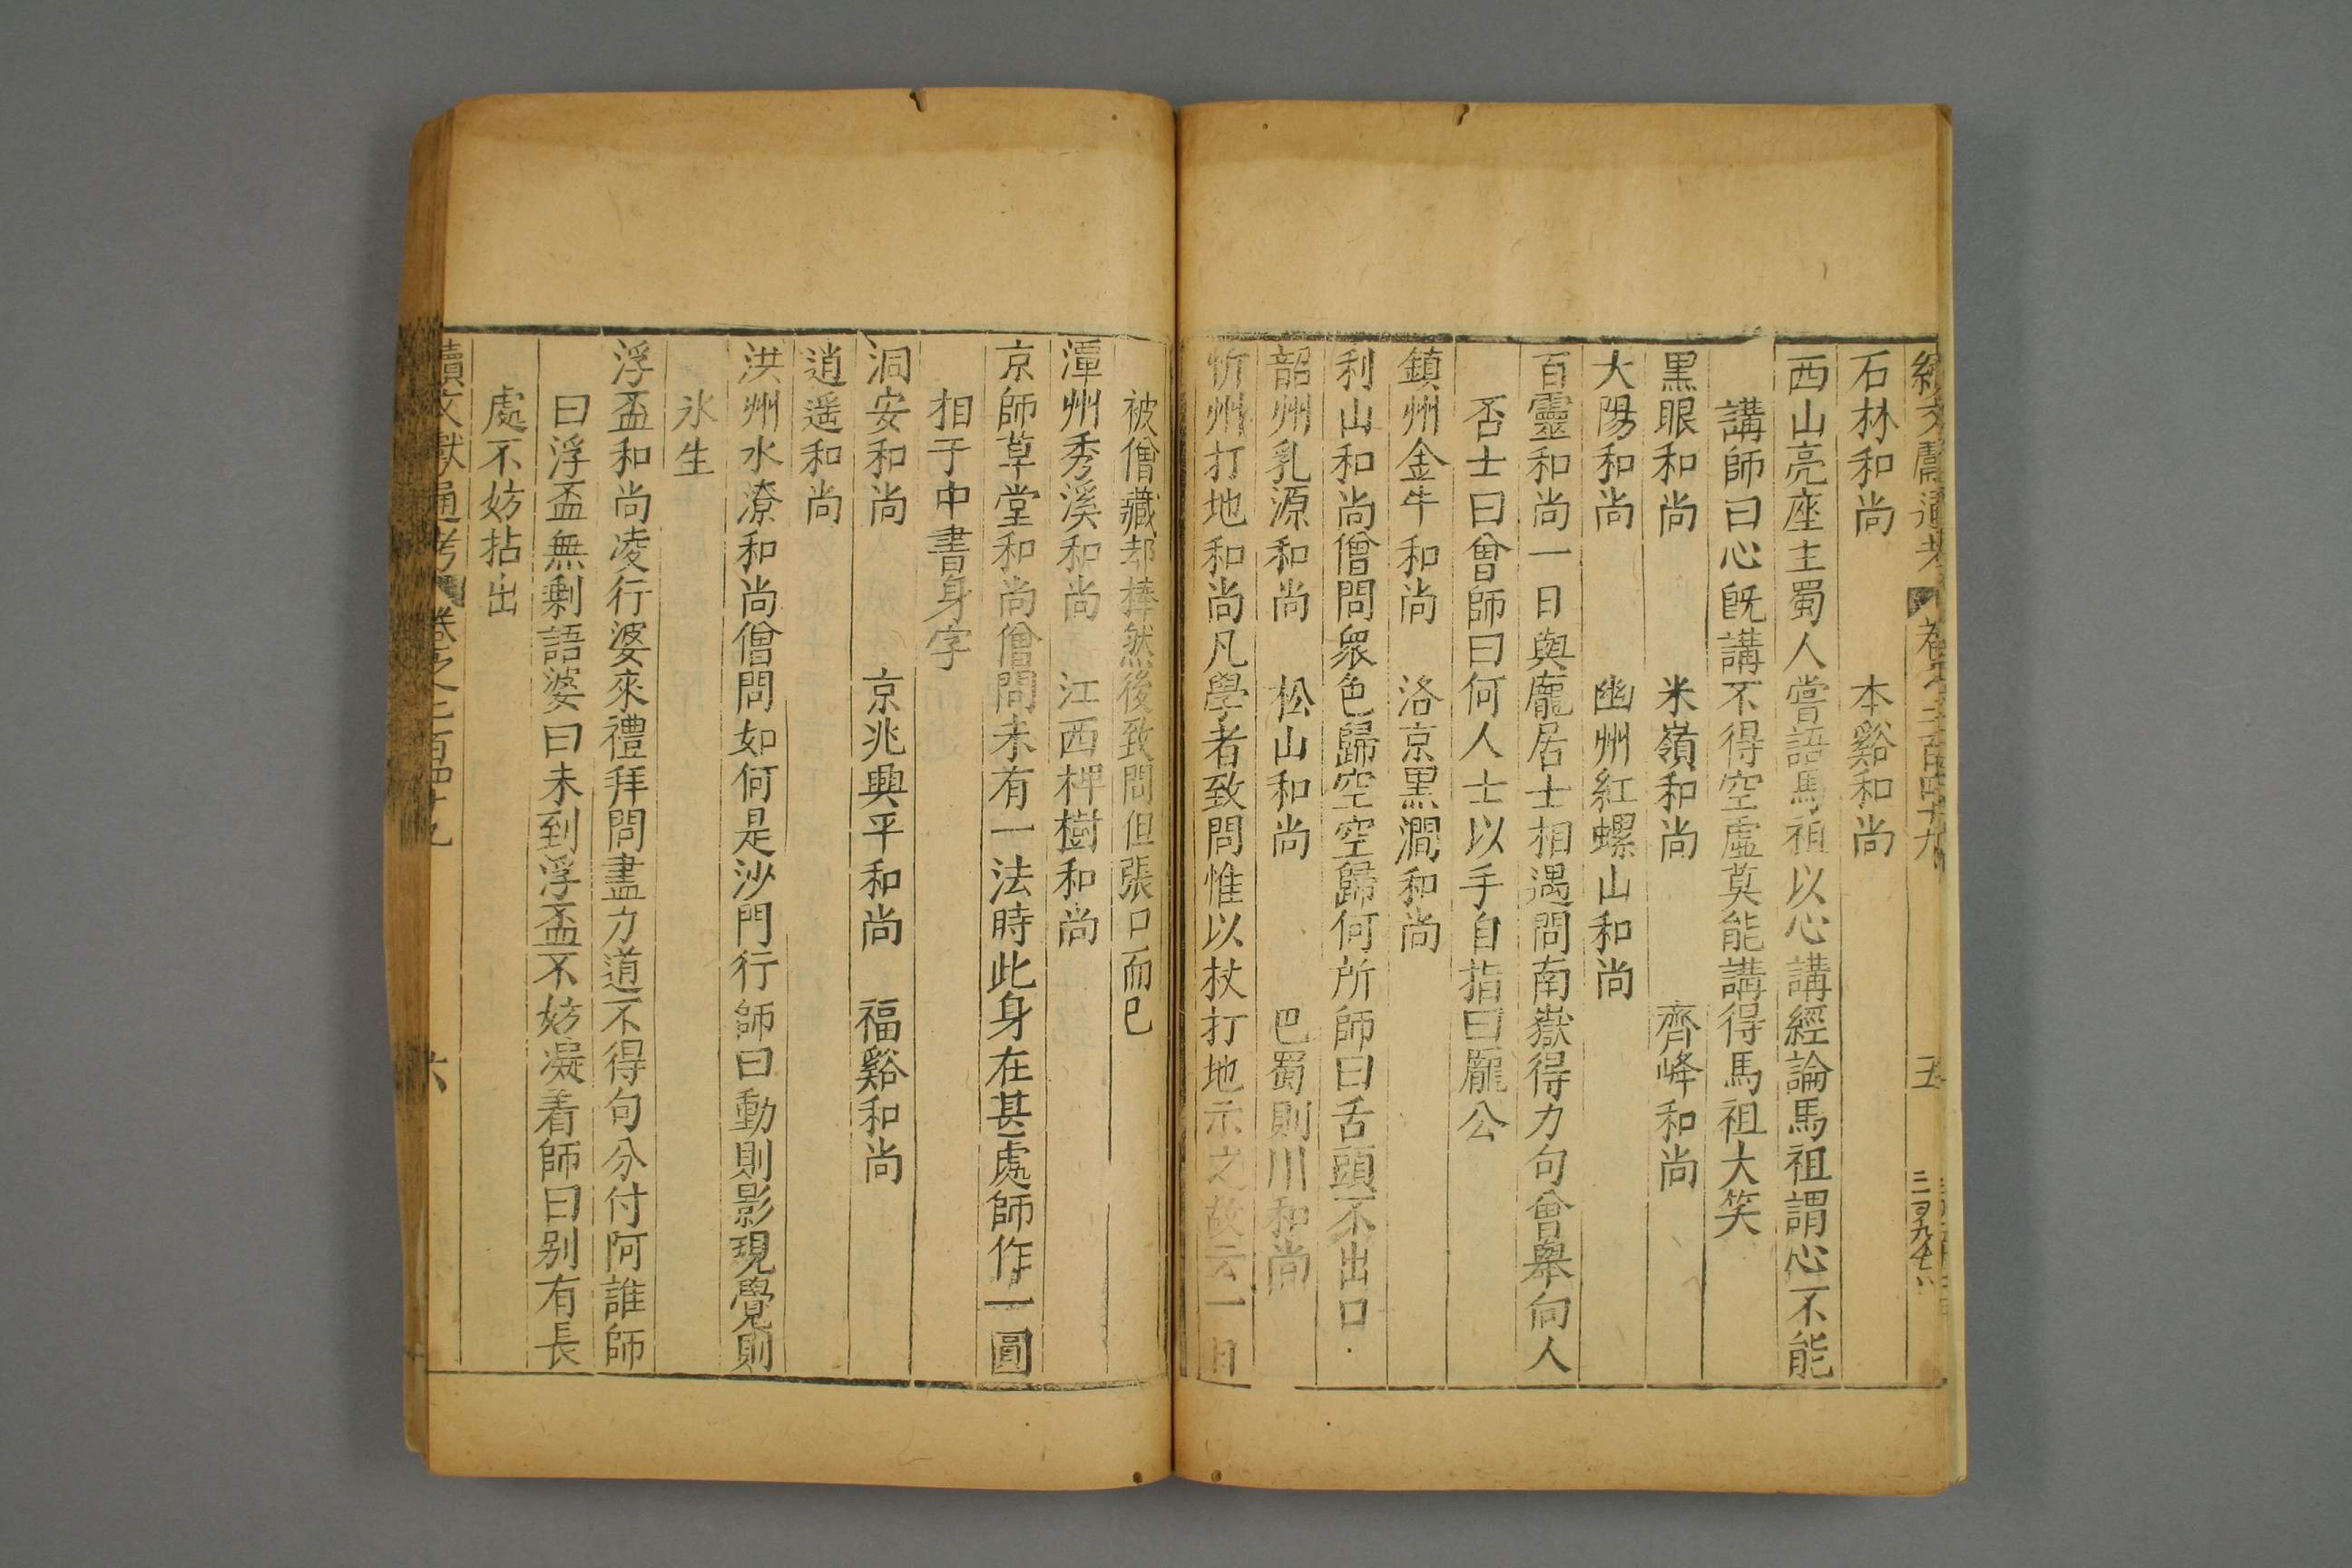 續文獻通考 卷之二百四十九 五
石林和尚 本谿和尚
西山亮座主蜀人嘗語馬祖以心講經論馬祖謂心不能
講師曰心旣講不得空虛莫能講得馬祖大笑
黑眼和尚 米嶺和尚 齊峰和尚
大陽和尚 幽州紅螺山和尚
百靈和尚一日與龐居士相遇問南嶽得力句曾舉向人
否士曰曾師曰何人士以手自指曰龐公
鎮州金牛和尚 洛京黑澗和尚
利山和尚僧問衆色歸空空歸何所師曰舌頭不出口
韶州乳源和尚 松山和尚 巴蜀則川和尚
忻州打地和尚凡學者致問惟以杖打地示之故云一日
被僧藏却棒然後致問但張口而已
潭州秀溪和尚 江西椑樹和尚
京師草堂和尚僧問未有一法時此身在甚處師作一圓
相于中書身字
洞安和尚 京兆興平和尚 福谿和尚
逍遥和尚
洪州水潦和尚僧問如何是沙門行師曰動則影現覺則
氷生
浮盃和尚凌行婆來禮拜問盡力道不得句分付阿誰師
曰浮盃無剩語婆曰未到浮盃不妨凝着師曰别有長
處不妨拈出
續文獻通考 卷之二百四十九 六